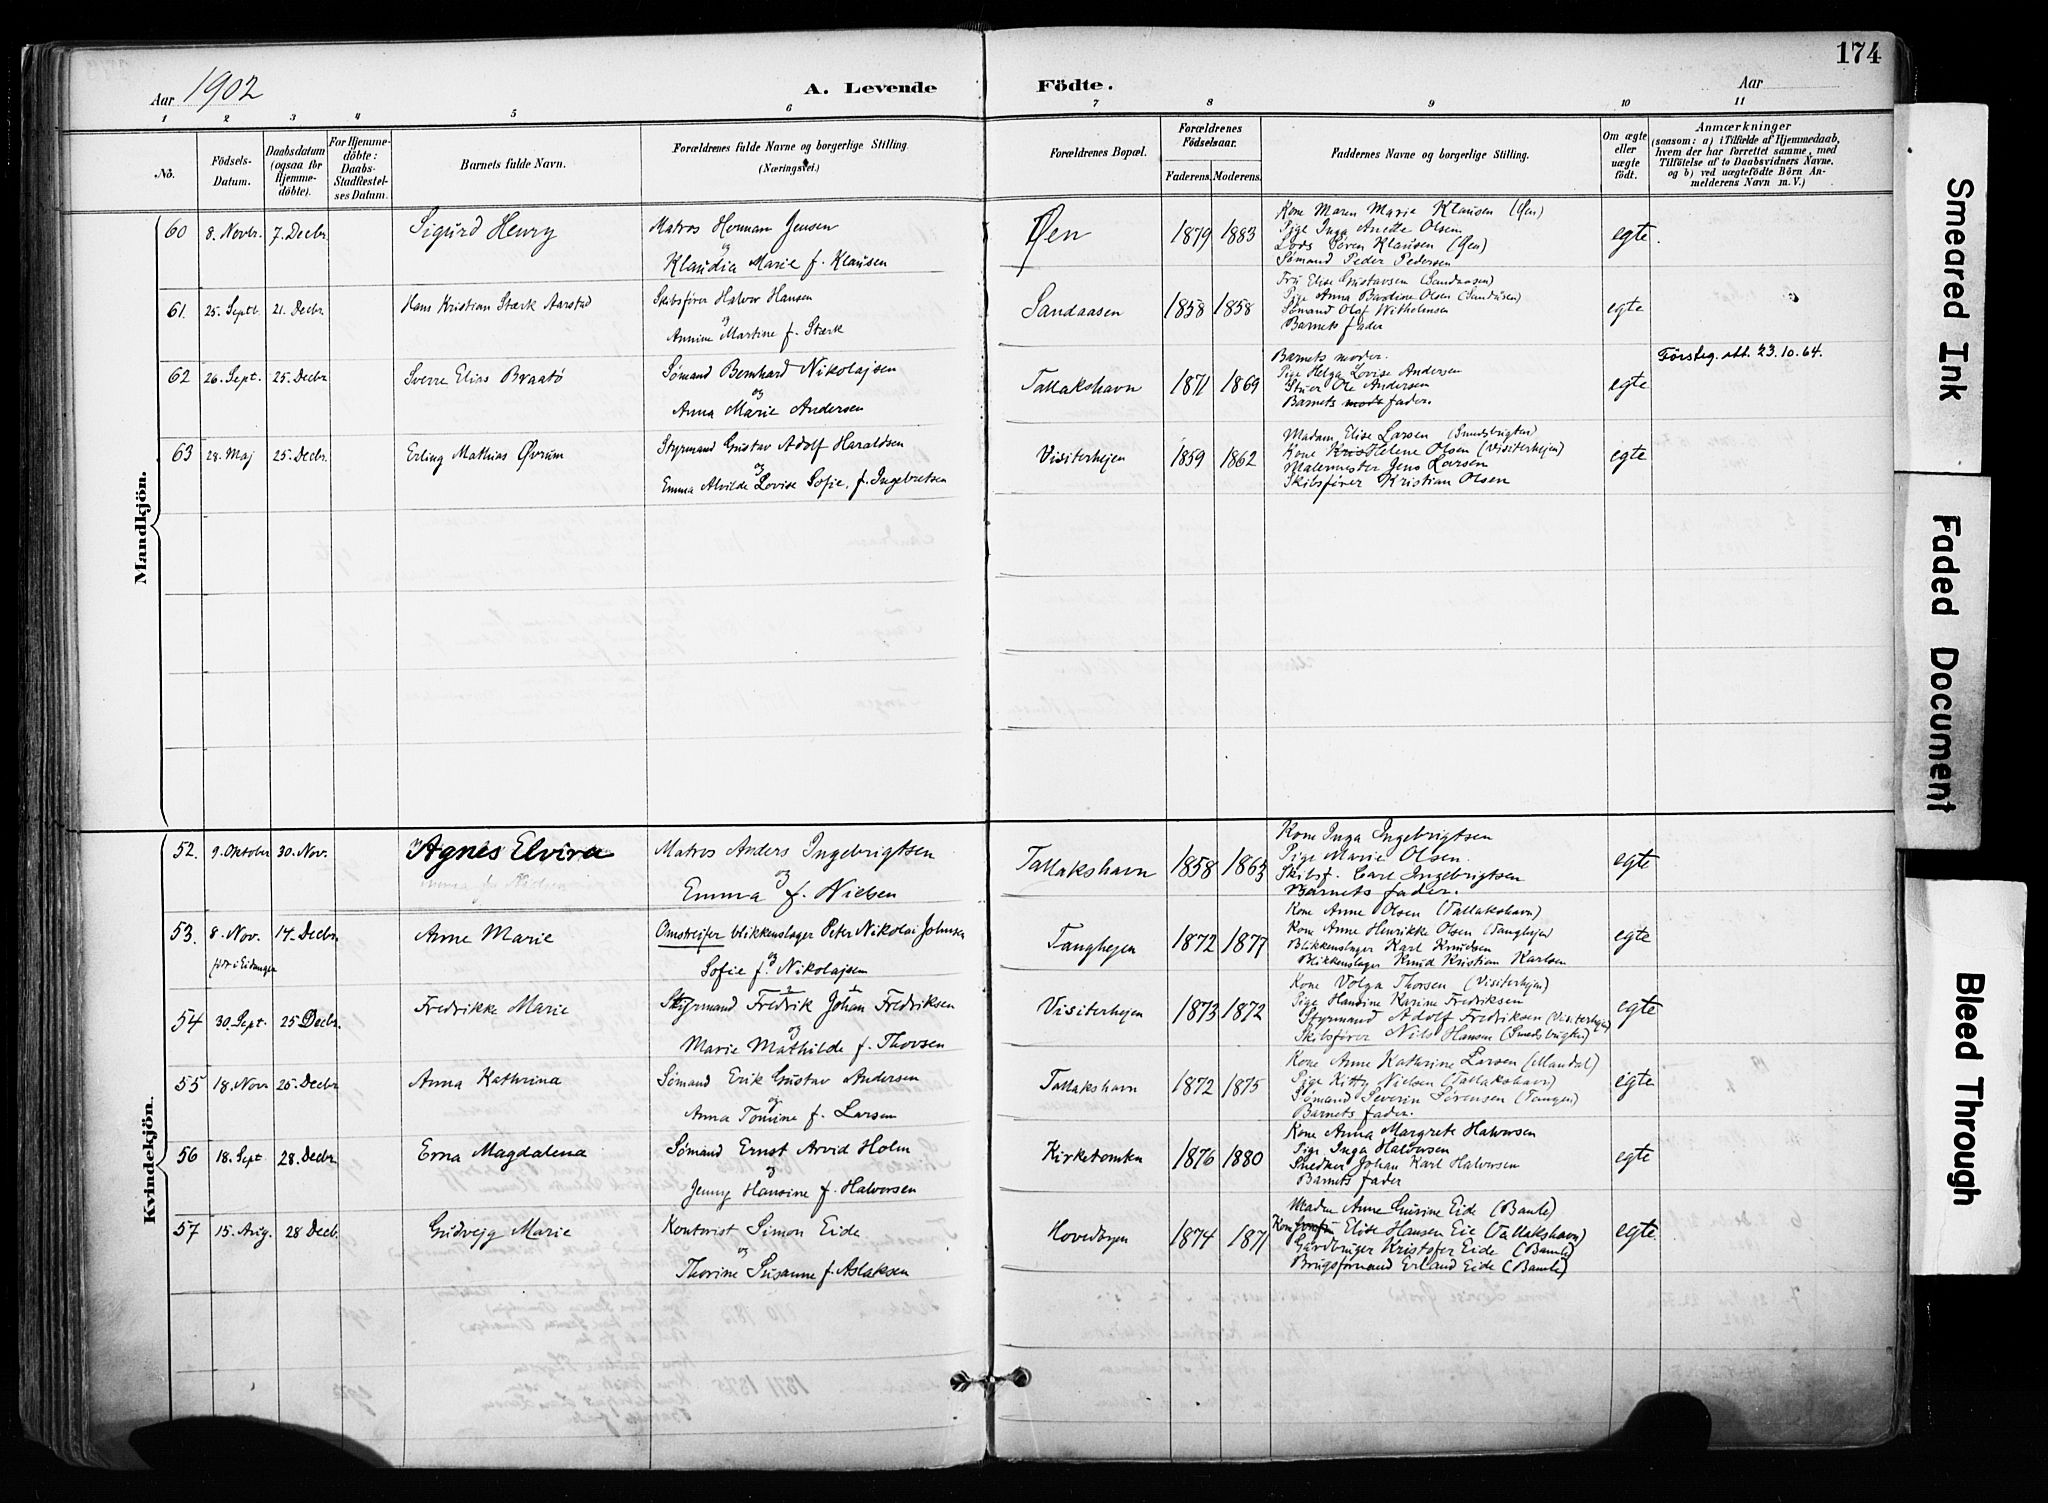 174
Aar 1902
A. Levende Födte.
Aar
1 2 3 4 5 6 7 8 9 10 11
No.
Födsels-Datum.
Daabsdatum (ogsaa for Hjemmedöbte).
For Hjemmedöbte: Daabs-Stadfæstelses Datum.
Barnets fulde Navn.
Forældrenes fulde Navne og borgerlige Stilling.
(Næringsvei.)
Forældrenes Bopæl.
Forældrenes Födselsaar.
Faderens. Moderens.
Faddernes Navne og borgerlige Stilling.
Om ægte eller uægte födt.
Anmærkninger
(saasom: a) i Tilfælde af Hjemmedaab,
hvem der har forrettet samme, med
Tilföielse af to Daabsvidners Navne,
og b) ved uægtefödte Börn An-
melderens Navn m. V.)
Mandkjön.
60 8. Novbr. 7. Decbr. Sigurd Henry
Matros Herman Jensen
og
Klaudia Marie f. Klausen
Øen 1879 1883
Kone Maren Marie Klausen (Øen)
Pige Inga Anette Olsen
Lods Søren Klausen (Øen)
Sømand Peder Pedersen
egte.
61. 25. Septb. 21. Decbr Hans Kristian Stærk Aarstad
Skibsfører Halvor Hansen
og
Annine Martine f. Stærk
Sandaasen 1858 1858
Fru Elise Gustavsen (Sandaasen)
Pige Anna Bastine Olsen (Sandaasen)
Sømand Olaf Wilhelmsen
Barnets fader
egte
62 26. Sept. 25. Decbr Sverre Elias Braatø
Sømand Bernhard Nikolajsen
og
Anna Marie Andersen
Tallakshavn 1871 1869
Barnets moder.
Pige Helga Lovise Andersen
Stuer Ole Andersen
Barnets mode fader.
egte
Førsteg. att. 23.10.64.
63 28. Maj 25. Decbr. Erling Mathias Øvrum
Styrmand Gustav Adolf Haraldsen
og
Emma Alvilde Lovise Sofie, f. Ingebretsen
Visiterhejen 1859 1862
Madam Elise Larsen (Smedsbrygten)
Kone Kris Helene Olsen (Visiterhejen)
Malermester Jens Larsen
Skibsfører Kristian Olsen
egte
Kvindekjön.
52. 9. Oktober 30. Nov. Agnes Elvira
Matros Anders Ingebrigtsen
og
Emma f. Nielsen
Tallakshavn 1858 1863
Kone Inga Ingebrigtsen
Pige Marie Olsen
Skibsf. Carl Ingebrigtsen
Barnets fader.
egte
53. 8. Nov. 14. Decbr. Anne Marie
født i Eidanger
Omstreifer blikkenslager Peter Nikolai Johnsen
og
Sofie f. Nikolajsen
Tanghejen 1872 1877
Kone Anne Olsen (Tallakshavn)
Kone Anne Henrikke Olsen (Tanghejen)
Blikkenslager Karl Knudsen
Blikkenslager Knud Kristian Karlsen
egte
54 30. Sept. 25 Decbr. Fredrikke Marie
Styrmand Fredrik Johan Fredriksen
og
Marie Mathilde f. Thorsen
Visiterhejen 1873 1872
Kone Volga Thorsen (Visiterhejen)
Pige Hansine Karine Fredriksen
Styrmand Adolf Fredriksen (Visiterhejen)
Skibsfører Nils Hansen (Smedsbrygten)
egte
55 18. Novr 25. Decbr Anna Kathrina
Sømand Erik Gustav Andersen
og
Anna Tomine f. Larsen
Tallakshavn 1872 1875
Kone Anne Kathrine Larsen (Mandal)
Pige Kitty Nielsen (Tallakshavn)
Sømand Severin Sørensen (Tangen)
Barnets fader.
egte
56 18. Sept 28. Decbr Erna Magdalena
Sømand Ernst Arvid Holm
og
Jenny Hansine f. Halvorsen
Kirketomten 1876 1880
Kone Anna Margrete Halvorsen
Pige Inga Halvorsen
Snedker Johan Karl Halvorsen
Barnets fader
egte
57 15. Aug. 28 Decb. Gudvejg Marie
Kontorist Simon Eide
og
Thorine Susanne f. Aslaksen
Hovedbyen 1874 1871
Madm Anne Guirine Eide (Bamle)
Kone Elise Hansen Eie (Tallakshavn)
Gårdbruger Kristofer Eide (Bamle)
Brugsformand Erland Eide (Bamle)
egte.
Smeared Ink
Faded Document
Bleed Through